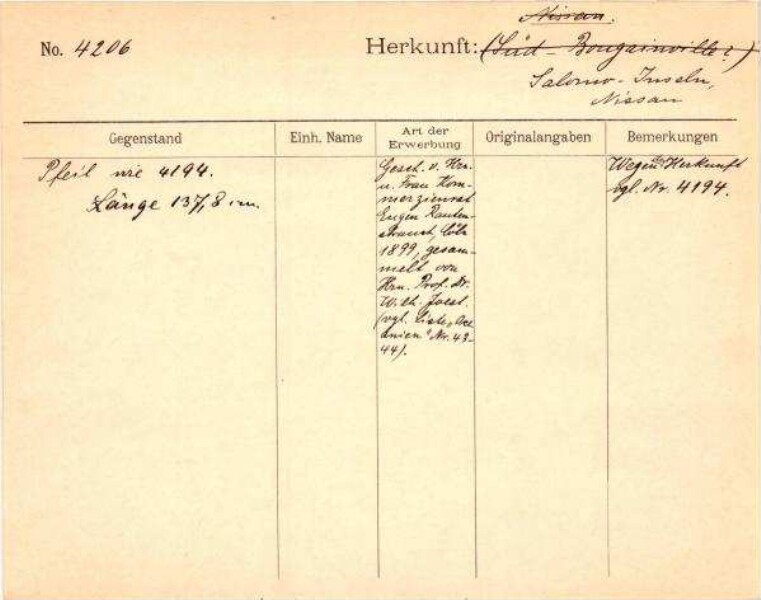 Nissan.
No. 4206
Herkunft: (Süd-Bougainville?)
Salomo-Inseln,
Nissan
Gegenstand
Einh. Name
Art der
Erwerbung
Originalangaben
Bemerkungen
Pfeil wie 4194.
Länge 137,8 cm.
Gesch. v. Hrn.
u. Frau Kom-
merzienrat
Eugen Rauten-
strauch, Cöln
1899, gesam-
melt von
Hrn. Prof. Dr.
Wilh. Joest.
(vgl. Liste „Oze
anien" Nr. 43-
44).
Wegen der Herkunft
vgl. Nr. 4194.